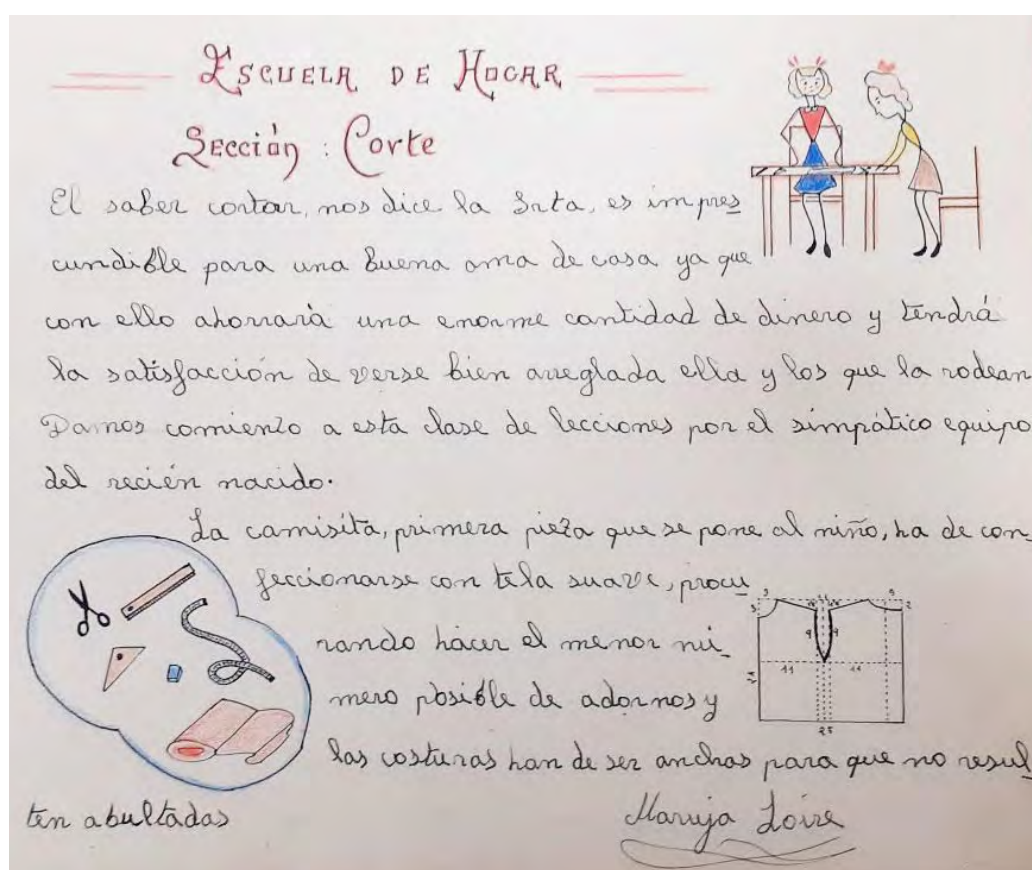 ESCUELA DE HOGAR
Sección : Corte
El saber cortar, nos dice la Srta, es impres
cundible para una buena ama de casa ya que
con ello ahorrará una enorme cantidad de dinero y tendrá
la satisfacción de verse bien arreglada ella y los que la rodean
Damos comienzo a esta clase de lecciones por el simpático equipo
del recién nacido.
La camisita, primera pieza que se pone al niño, ha de con_
feccionarse con tela suave, procu
rando hacer el menor nú_
mero posible de adornos y
las costuras han de ser anchas para que no resul_
ten abultadas
3 9
3 2
9 9
11 11
25
Maruja